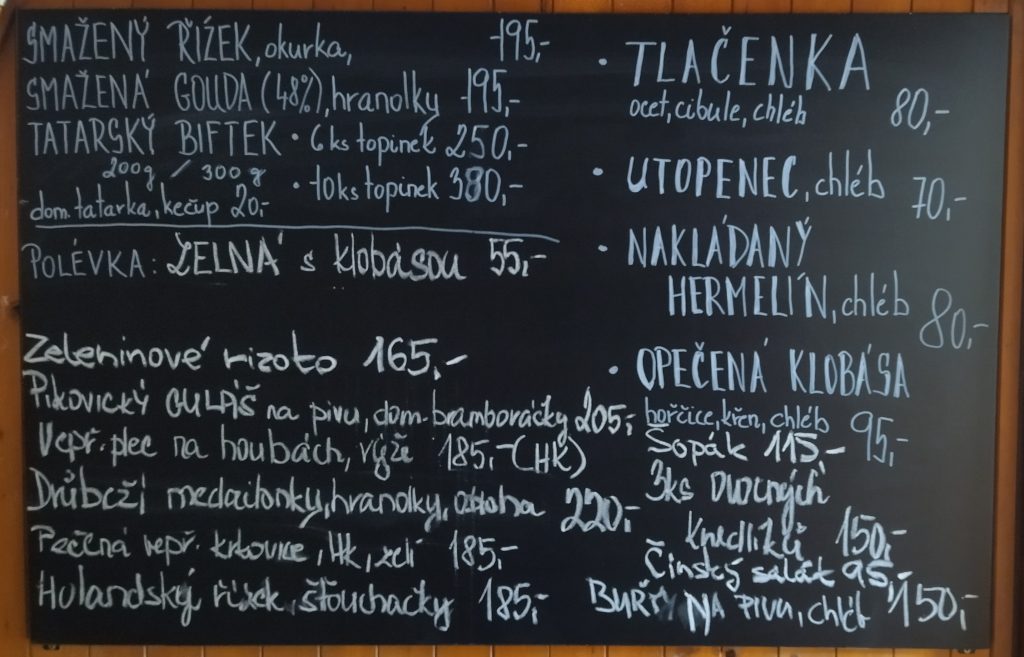 SMAŽENÝ ŘÍZEK, okurka, -195,-
SMAŽENÁ GOUDA (48%), hranolky -195,-
TATARSKÝ BIFTEK • 6ks topinek 250,-
200g / 300g • 10ks topinek 380,-
dom. tatarka, kečup 20,-
POLÉVKA: ZELNÁ s klobásou 55,-
Zeleninové rizoto 165,-
Pikovický GULÁŠ na pivu, dom. bramboráčky 205,-
Vepř. plec na houbách, rýže 185,- (HK)
Drůbeží medailonky, hranolky, obloha 220,-
Pečená vepř. krkovice, HK, zelí 185,-
Holandský řízek, šťouchačky 185,-
• TLAČENKA
ocet, cibule, chléb 80,-
• UTOPENEC, chléb 70,-
• NAKLÁDANÝ
HERMELÍN, chléb 80,-
• OPEČENÁ KLOBÁSA
hořčice, křen, chléb 95,-
Šopák 115,-
3ks Ovocných
Knedlíků 150,-
Čínský salát 95,-
BUŘT NA PIVU, chléb 150,-